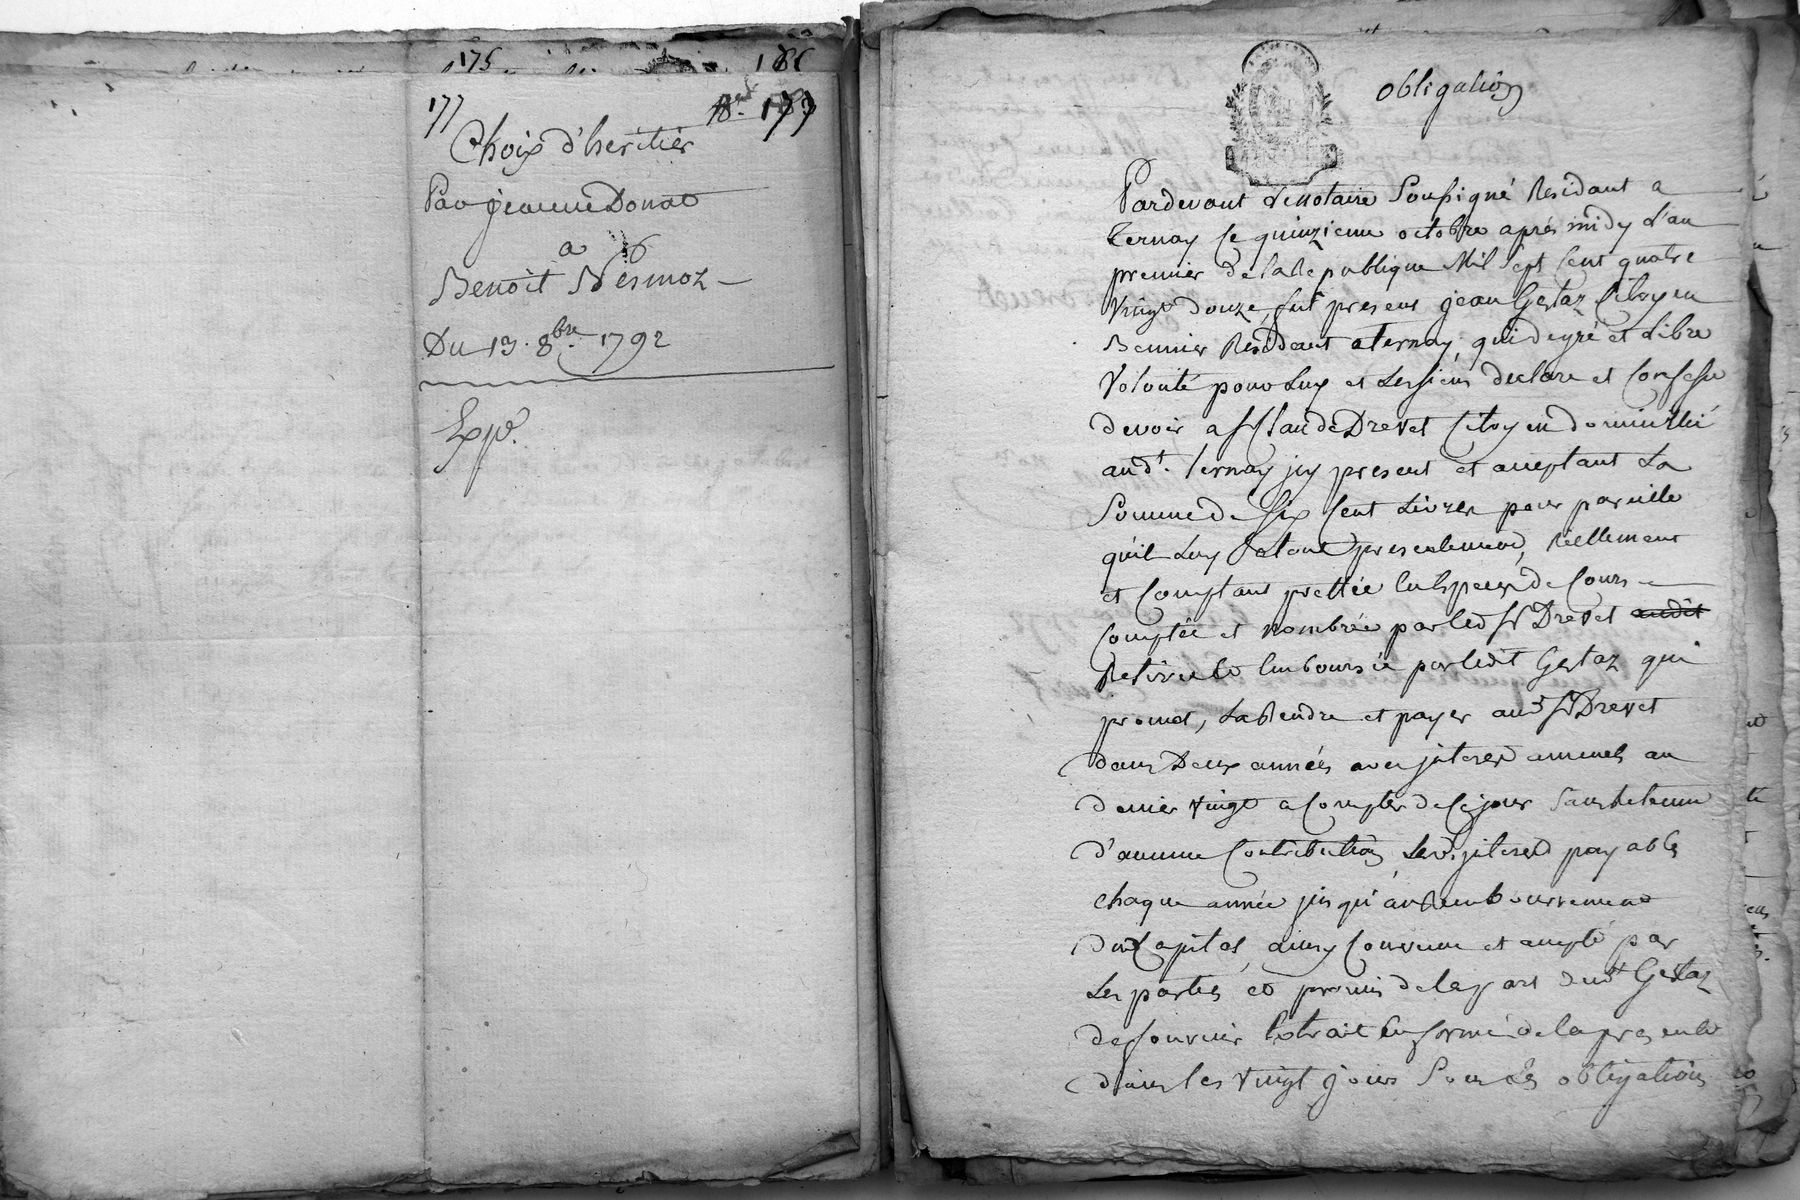 175 186
177
177
Choix d'heritier
Par jeanne Donat
a
Benoit Nesmoz
Du 13. 8bre. 1792
Exp.
obligation
Pardevant le Notaire Soussigné Residant a
ternay ce quinzieme octobre aprés midy l'an
premier de la Republique Mil Sept Cent quatre
Vingt douze, fut present jean Gertaz Citoyen
Residant a Ternay, qui de gré et Libre
Volonté pour Luy et Les siens declare et Confesse
devoir a Sr Claude Drevet Citoyen domicillié
aud't. ternay jcy present et acceptant La
Somme de Six Cent Livres pour pareille
qu'il Luy a etoit presentement, Réellement
et Comptant prettée En Especes de Cours
Comptée et nombrée par led Sr Drevet audit
Retirée et Emboursée par ledit Gertaz qui
promet, La Rendre et payer aud Sr Drevet
dans Deux années avec jnterest annuel au
denier vingt a Compter de Ce jour Sans Retenue
d'aucune Contribution Led. jnterest payable
chaque année jusqu'au Remboursement
du Capital, ainsy Convenu et accepté par
Les parties et promis de la part dud't Gertaz
de fournir Extrait En forme de la presente
dans les vingt jours Sous Les obligations